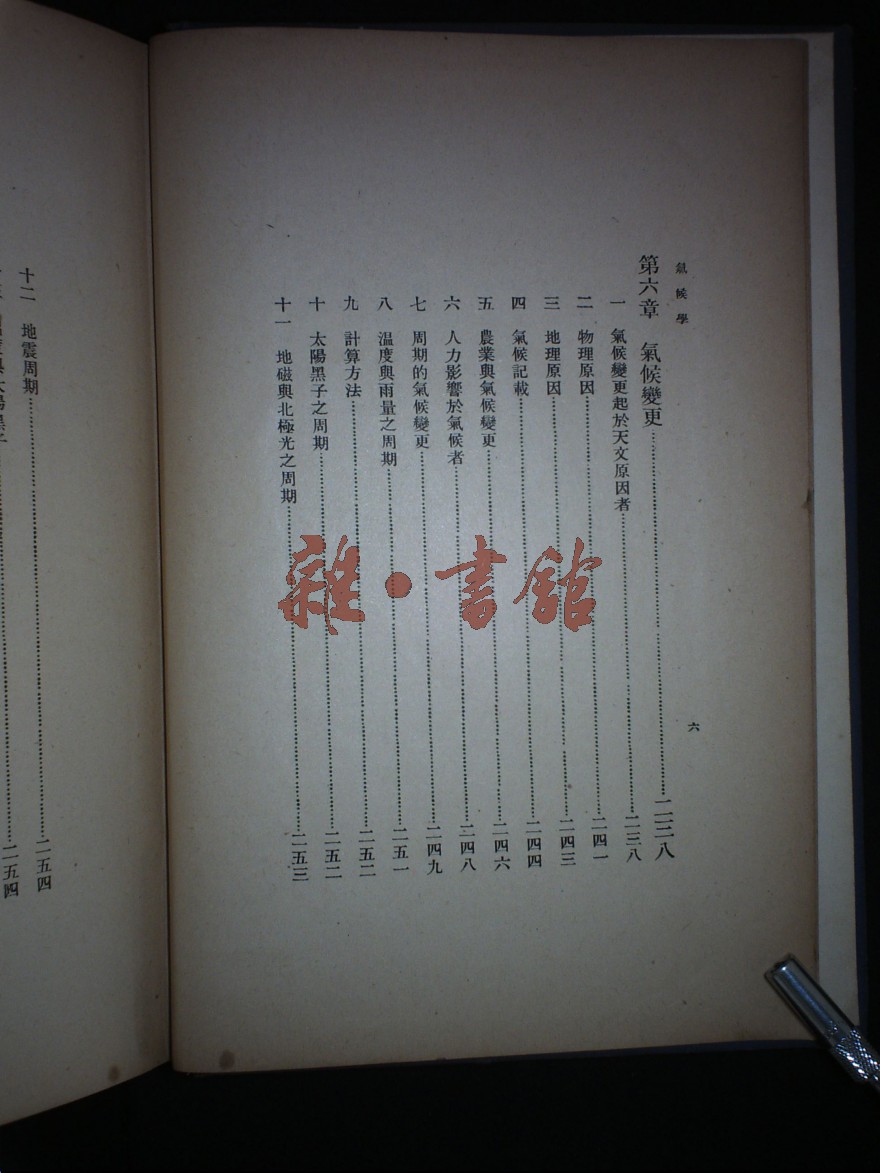 氣候學
第六章　氣候變更……二二八
一　氣候變更起於天文原因者……二三八
二　物理原因……二四一
三　地理原因……二四三
四　氣候記載……二四四
五　農業與氣候變更……二四六
六　人力影響於氣候者……二四八
七　周期的氣候變更……二四九
八　温度與雨量之周期……二五一
九　計算方法……二五二
十　太陽黑子之周期……二五二
十一　地磁與北極光之周期……二五三
六
十二　地震周期……二五四
二五四
雜・書館